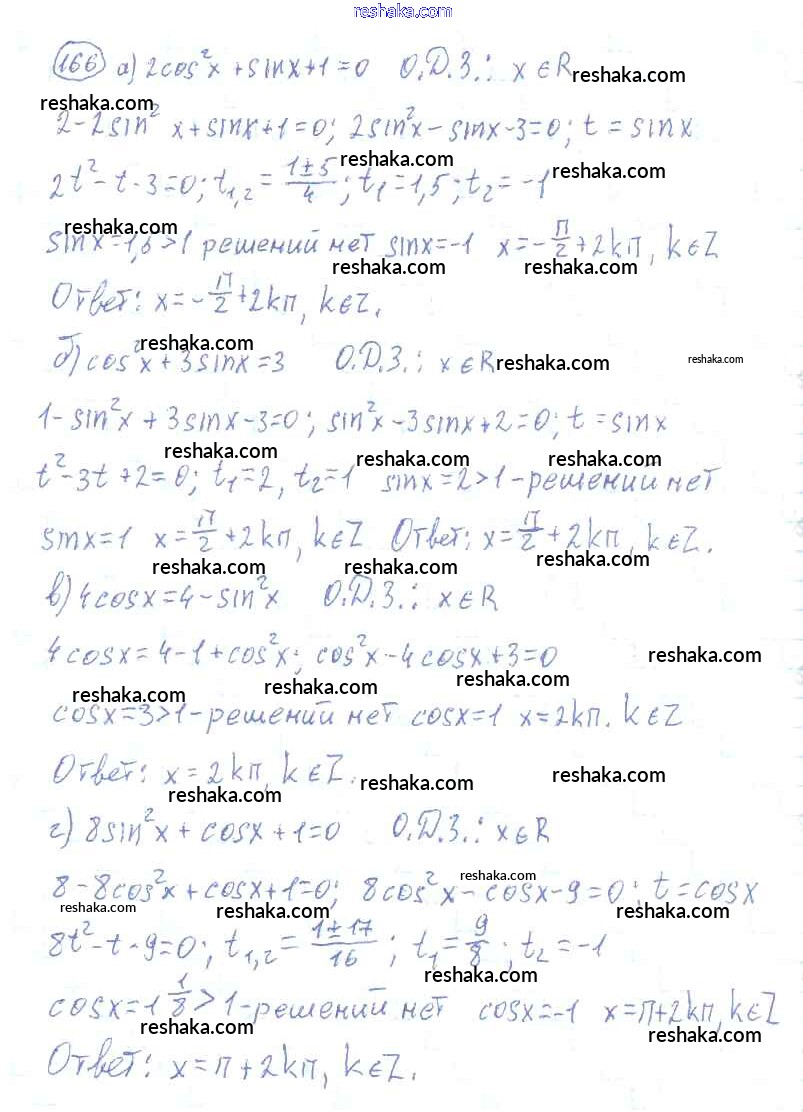 reshaka.com
166 а) 2cos²x + sinx + 1 = 0 О.Д.З.: x ∈ R reshaka.com
reshaka.com
2 - 2sin²x + sinx + 1 = 0; 2sin²x - sinx - 3 = 0; t = sinx
reshaka.com
2t² - t - 3 = 0; t₁,₂ = (1±5)/4; t₁ = 1,5; t₂ = -1 reshaka.com
reshaka.com
sinx = 1,5 > 1 решений нет sinx = -1 x = -π/2 + 2kπ, k ∈ Z
reshaka.com reshaka.com
Ответ: x = -π/2 + 2kπ, k ∈ Z.
reshaka.com
б) cos²x + 3sinx = 3 О.Д.З.: x ∈ R reshaka.com reshaka.com
1 - sin²x + 3sinx - 3 = 0; sin²x - 3sinx + 2 = 0; t = sinx
reshaka.com reshaka.com reshaka.com
t² - 3t + 2 = 0; t₁ = 2, t₂ = 1 sinx = 2 > 1 - решений нет
sinx = 1 x = π/2 + 2kπ, k ∈ Z Ответ: x = π/2 + 2kπ, k ∈ Z.
reshaka.com reshaka.com
в) 4cosx = 4 - sin²x О.Д.З.: x ∈ R
4cosx = 4 - 1 + cos²x; cos²x - 4cosx + 3 = 0 reshaka.com
reshaka.com reshaka.com reshaka.com
cosx = 3 > 1 - решений нет cosx = 1 x = 2kπ. k ∈ Z
Ответ: x = 2kπ, k ∈ Z. reshaka.com reshaka.com
reshaka.com
г) 8sin²x + cosx + 1 = 0 О.Д.З.: x ∈ R
reshaka.com
8 - 8cos²x + cosx + 1 = 0; 8cos²x - cosx - 9 = 0; t = cosx
reshaka.com reshaka.com reshaka.com
8t² - t - 9 = 0; t₁,₂ = (1±17)/16; t₁ = 9/8; t₂ = -1
reshaka.com
cosx = 1 1/8 > 1 - решений нет cosx = -1 x = π + 2kπ, k ∈ Z
reshaka.com reshaka.com
Ответ: x = π + 2kπ, k ∈ Z.